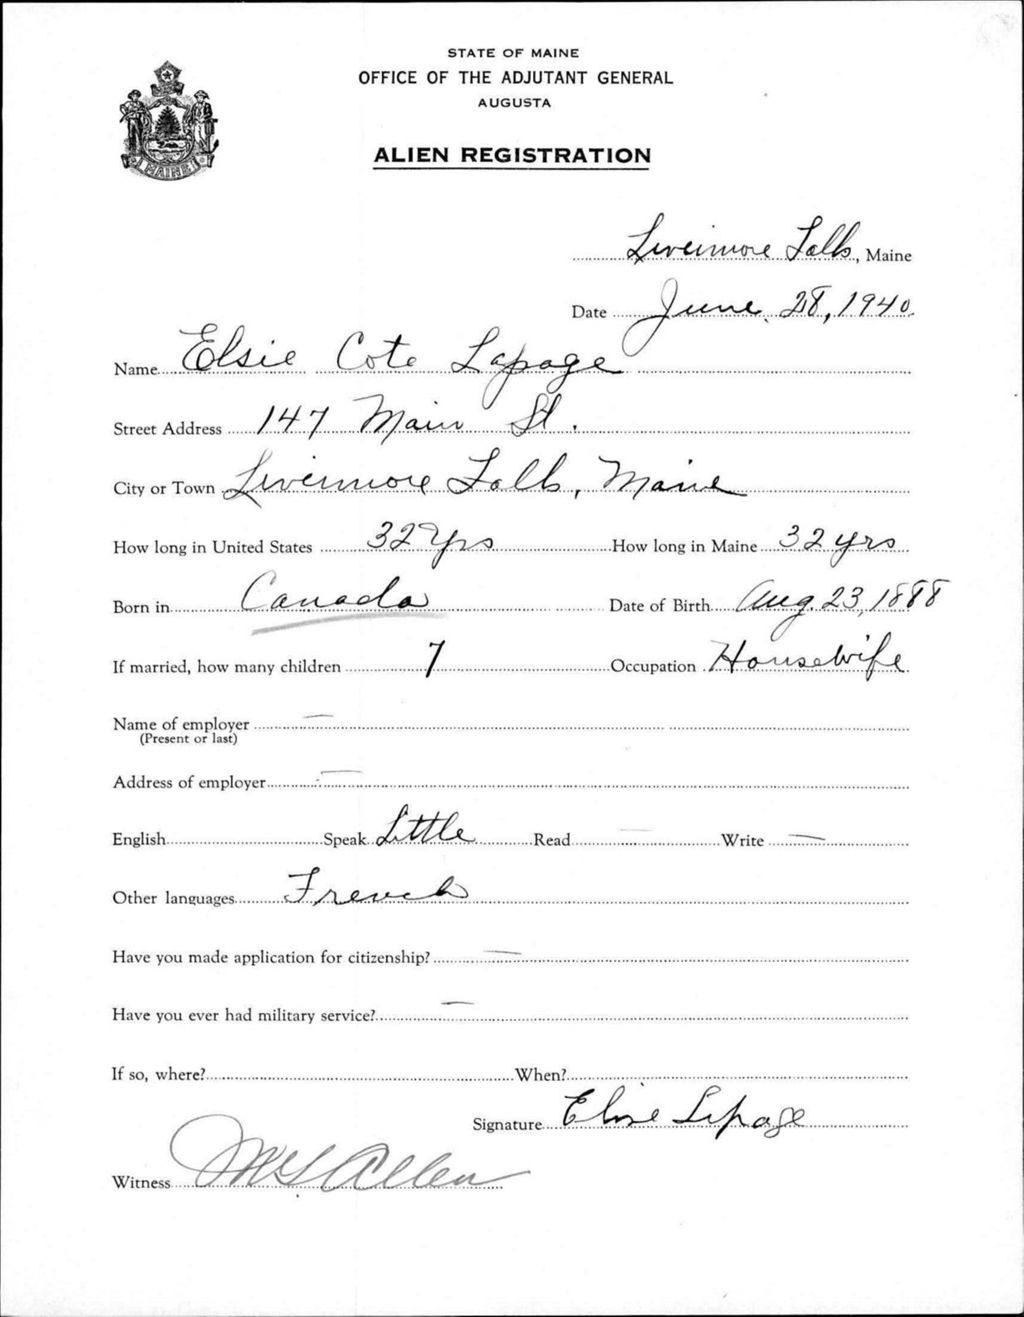 STATE OF MAINE
OFFICE OF THE ADJUTANT GENERAL
AUGUSTA
ALIEN REGISTRATION
MAINE
Livermore Falls, Maine
Date June 28, 1940
Name Elsie Cote Lapage
Street Address 147 Main St.
City or Town Livermore Falls, Maine
How long in United States 32 Yrs How long in Maine 32 yrs
Born in Canada Date of Birth Aug. 23, 1888
If married, how many children 7 Occupation Housewife
Name of employer —
(Present or last)
Address of employer —
English Speak Little Read — Write —
Other languages French
Have you made application for citizenship? —
Have you ever had military service? —
If so, where? When?
Signature Elise Lepage
Witness Allen